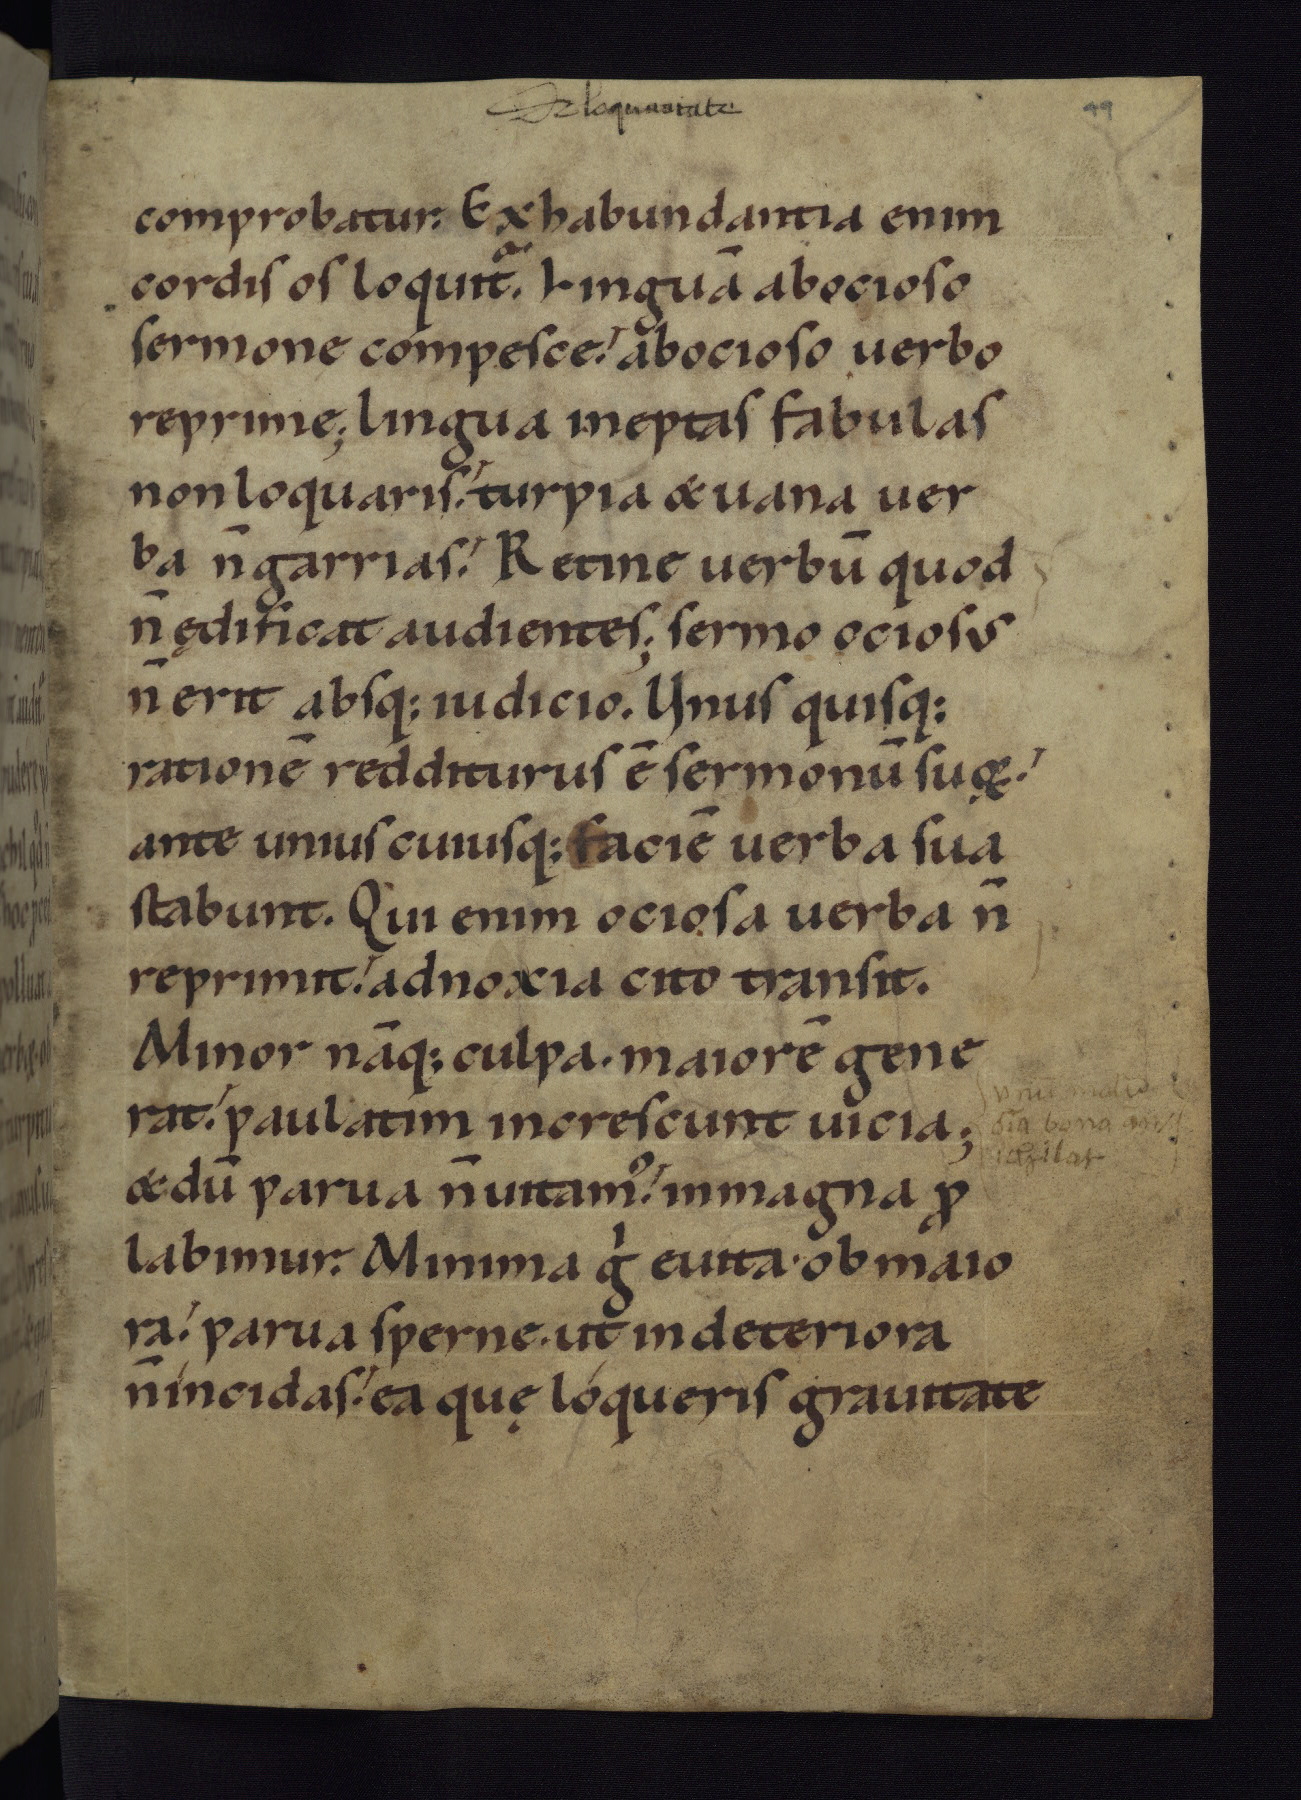 De loquacitate
49
comprobatur. Ex habundantia enim
cordis os loquit̄. Linguā ab ocioso
sermone compesce. ab ocioso uerbo
reprime; lingua ineptas fabulas
non loquaris. turpia & uana uer
ba n̄ garrias. Retine uerbū quod
n̄ ędificat audientes; sermo ociosus
n̄ erit absq; iudicio. Unus quisq;
rationē redditurus ē sermonū suoꝝ.
ante unius cuiusq; faciē uerba sua
stabunt. Qui enim ociosa uerba n̄
reprimit. ad noxia cito transit.
Minor nāq; culpa. maiorē gene
rat. paulatim increscunt uicia;
& dū parua n̄ uitamꝰ. in magna ꝓ
labimur. Minima g̍ euita. ob maio
ra. parua sperne. ut in deteriora
n̄ incidas. ea quę loqueris grauitate
bona